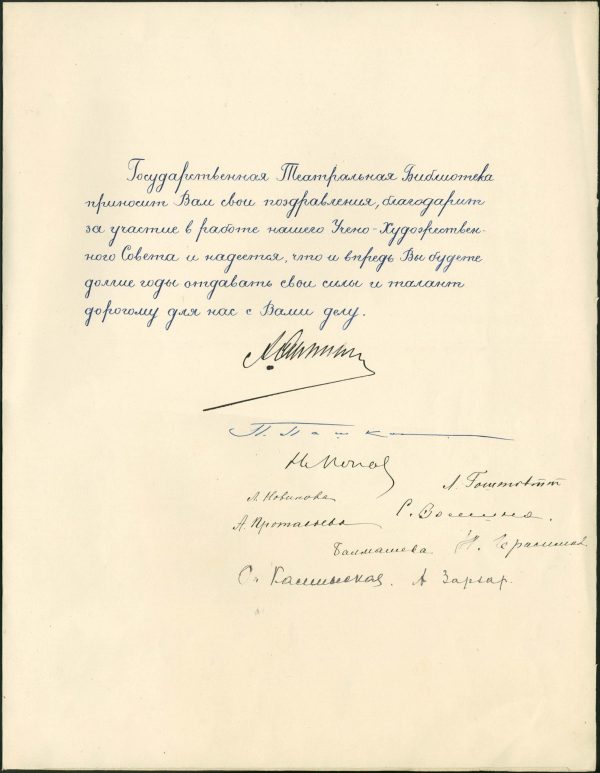 Государственная Театральная Библиотека
приносит Вам свои поздравления, благодарит
за участие в работе нашего Учено-Художествен-
ного Совета и надеется, что и впредь Вы будете
долгие годы отдавать свои силы и талант
дорогому для нас с Вами делу.
П. Пашка
Н. Попов
Л. Гоштовтт
Л. Новикова
А. Протасьева
Балмашева
А Заргар.